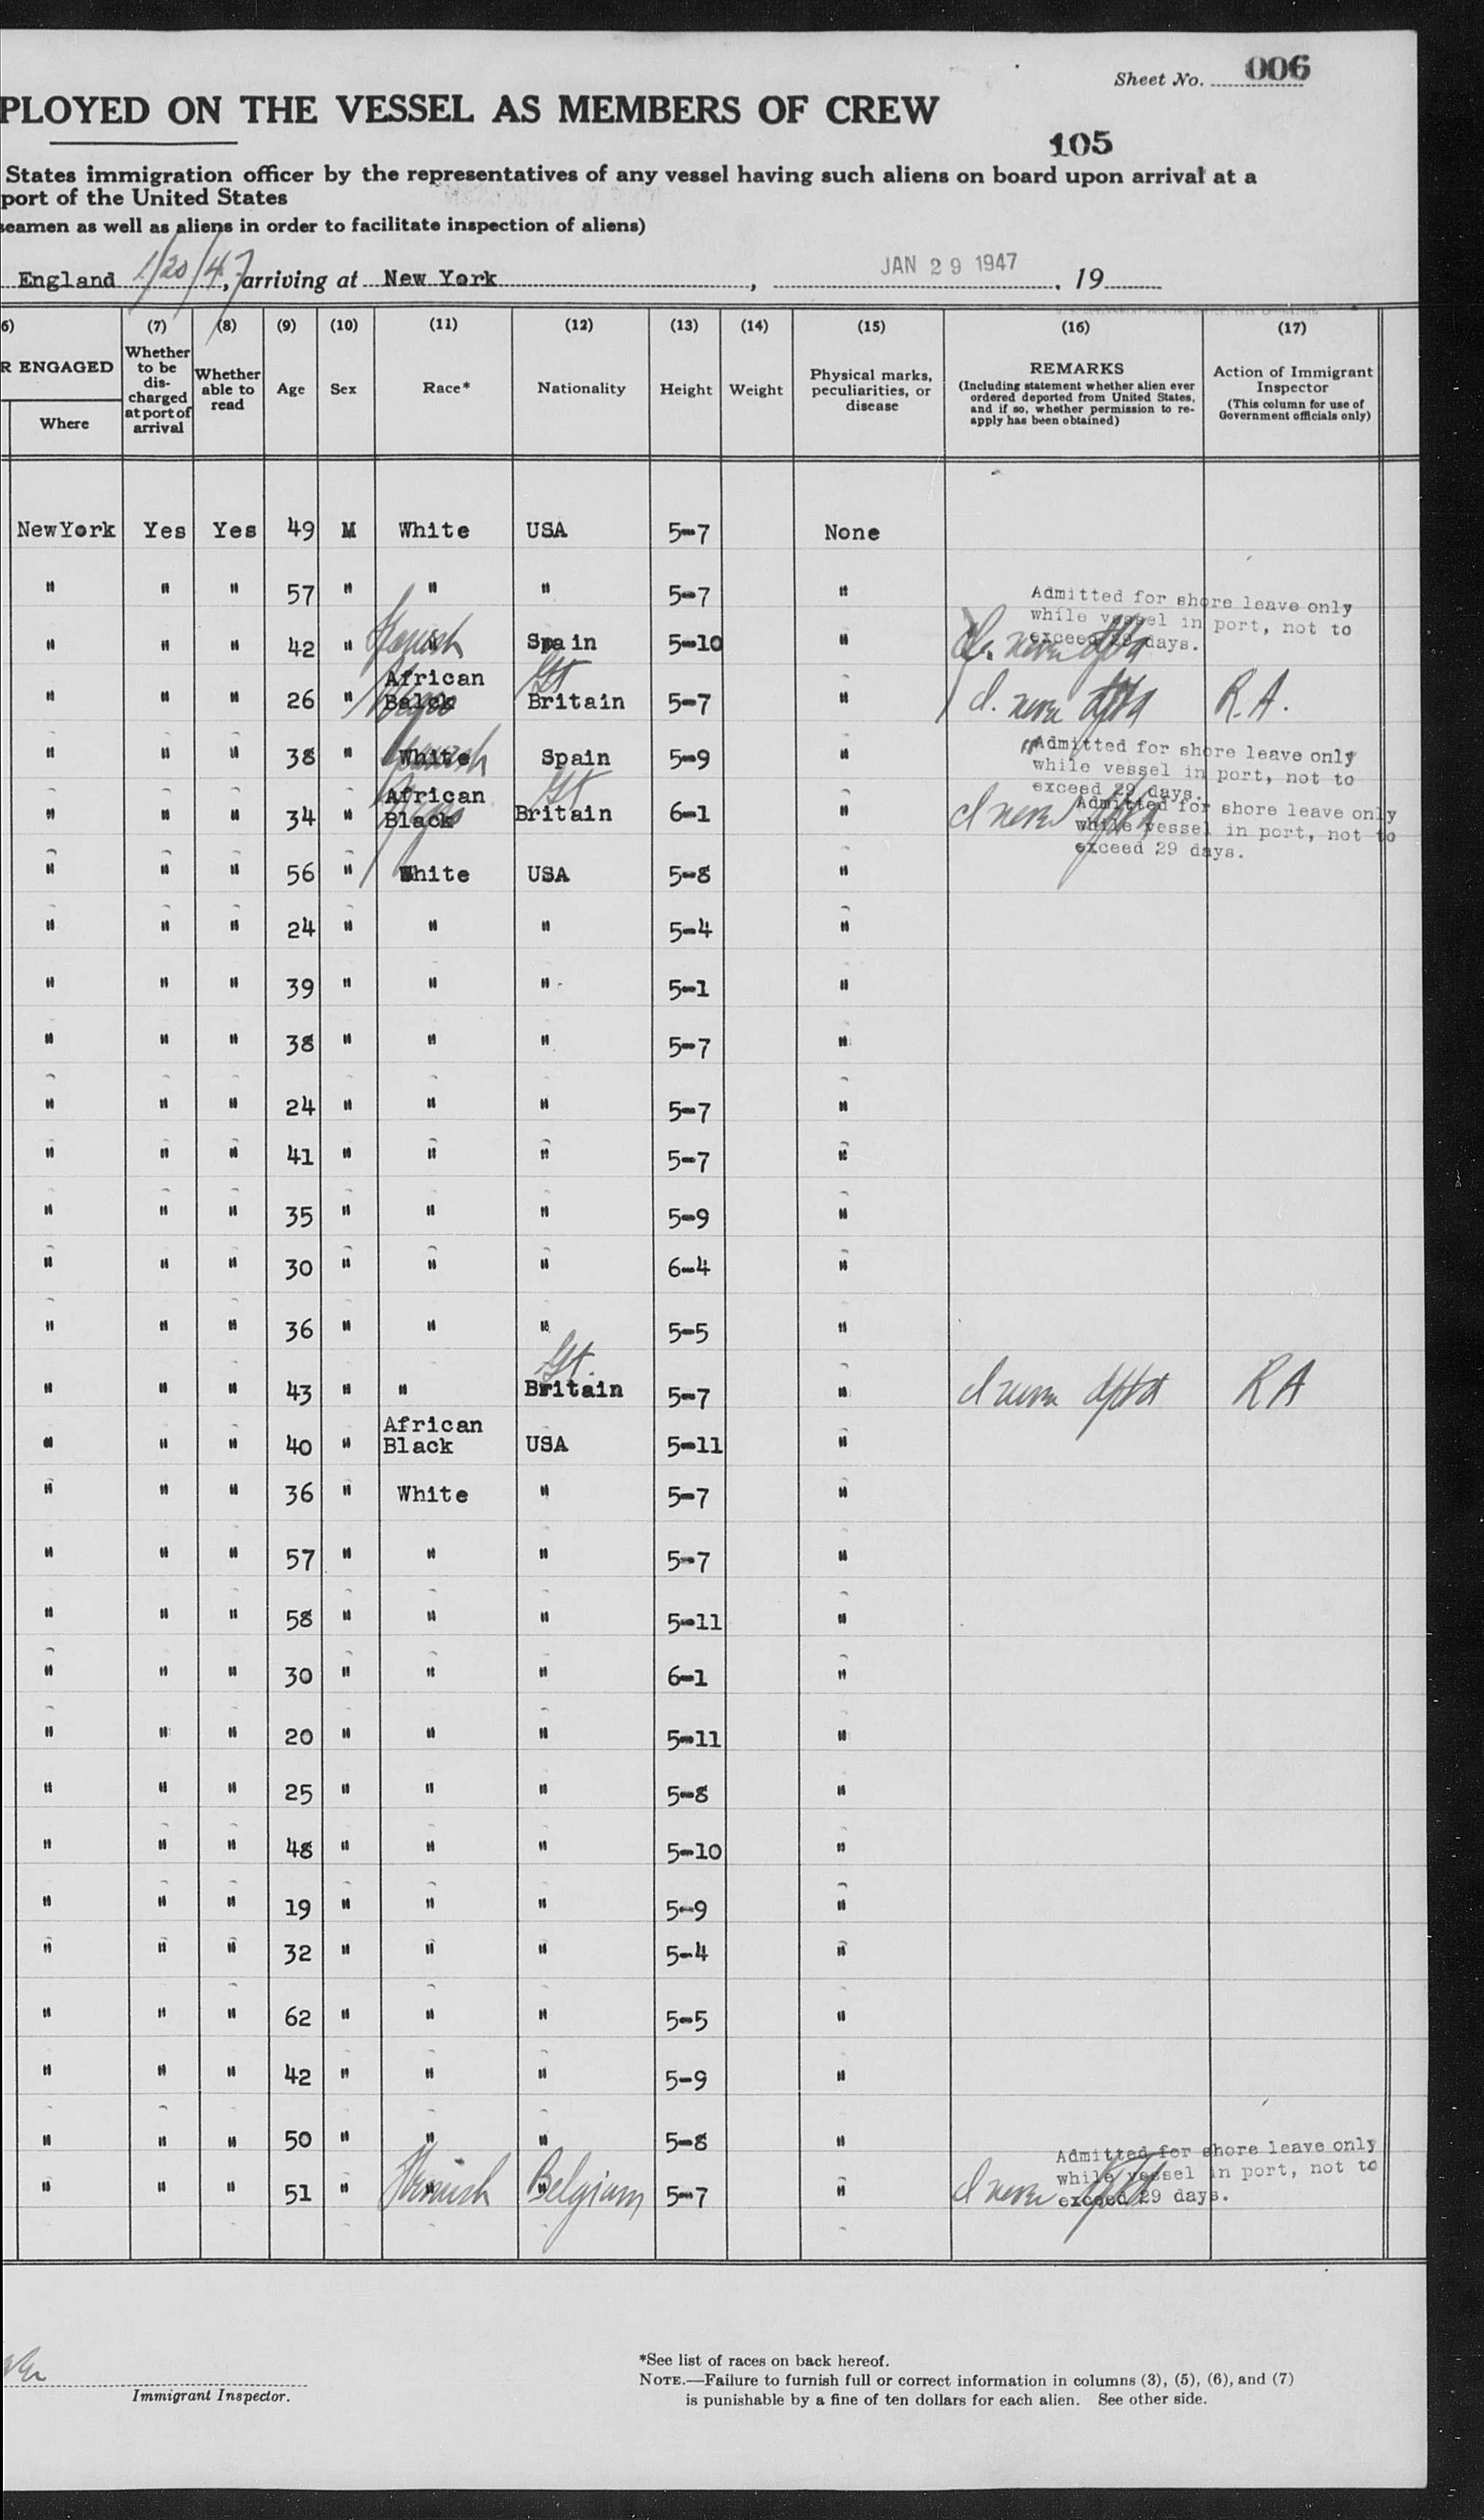 Sheet No. 006
PLOYED ON THE VESSEL AS MEMBERS OF CREW
105
States immigration officer by the representatives of any vessel having such aliens on board upon arrival at a
port of the United States
seamen as well as aliens in order to facilitate inspection of aliens)
England 1/20/47, arriving at New York, JAN 29 1947, 19
6) (7) (8) (9) (10) (11) (12) (13) (14) (15) (16) (17)
R ENGAGED Where
Whether to be discharged at port of arrival
Whether able to read
Age
Sex
Race*
Nationality
Height
Weight
Physical marks, peculiarities, or disease
REMARKS
(Including statement whether alien ever
ordered deported from United States,
and if so, whether permission to re-
apply has been obtained)
Action of Immigrant
Inspector
(This column for use of
Government officials only)
NewYork Yes Yes 49 M White USA 5-7 None
" " " 57 " " " 5-7 "
Admitted for shore leave only
while vessel in port, not to
exceed 29 days.
" " " 42 " " Spanish Spain 5-10 " never
" " " 26 " African Balck Negro Gt Britain 5-7 " never R.A.
" " " 38 " White Spanish Spain 5-9 "
Admitted for shore leave only
while vessel in port, not to
exceed 29 days.
" " " 34 " African Black Negro Gt Britain 6-1 " never
Admitted for shore leave only
while vessel in port, not to
exceed 29 days.
" " " 56 " White USA 5-8 "
" " " 24 " " " 5-4 "
" " " 39 " " " 5-1 "
" " " 38 " " " 5-7 "
" " " 24 " " " 5-7 "
" " " 41 " " " 5-7 "
" " " 35 " " " 5-9 "
" " " 30 " " " 6-4 "
" " " 36 " " " 5-5 "
" " " 43 " " Gt. Britain 5-7 " never RA
" " " 40 " African Black USA 5-11 "
" " " 36 " White " 5-7 "
" " " 57 " " " 5-7 "
" " " 58 " " " 5-11 "
" " " 30 " " " 6-1 "
" " " 20 " " " 5-11 "
" " " 25 " " " 5-8 "
" " " 48 " " " 5-10 "
" " " 19 " " " 5-9 "
" " " 32 " " " 5-4 "
" " " 62 " " " 5-5 "
" " " 42 " " " 5-9 "
" " " 50 " " " 5-8 "
Admitted for shore leave only
while vessel in port, not to
exceed 29 days.
" " " 51 " " " Belgium 5-7 " never
Immigrant Inspector.
*See list of races on back hereof.
NOTE.—Failure to furnish full or correct information in columns (3), (5), (6), and (7)
is punishable by a fine of ten dollars for each alien. See other side.